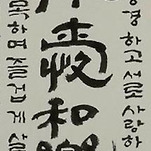 경하고 서로 사랑하
愛和樂
목하며 즐겁게 살